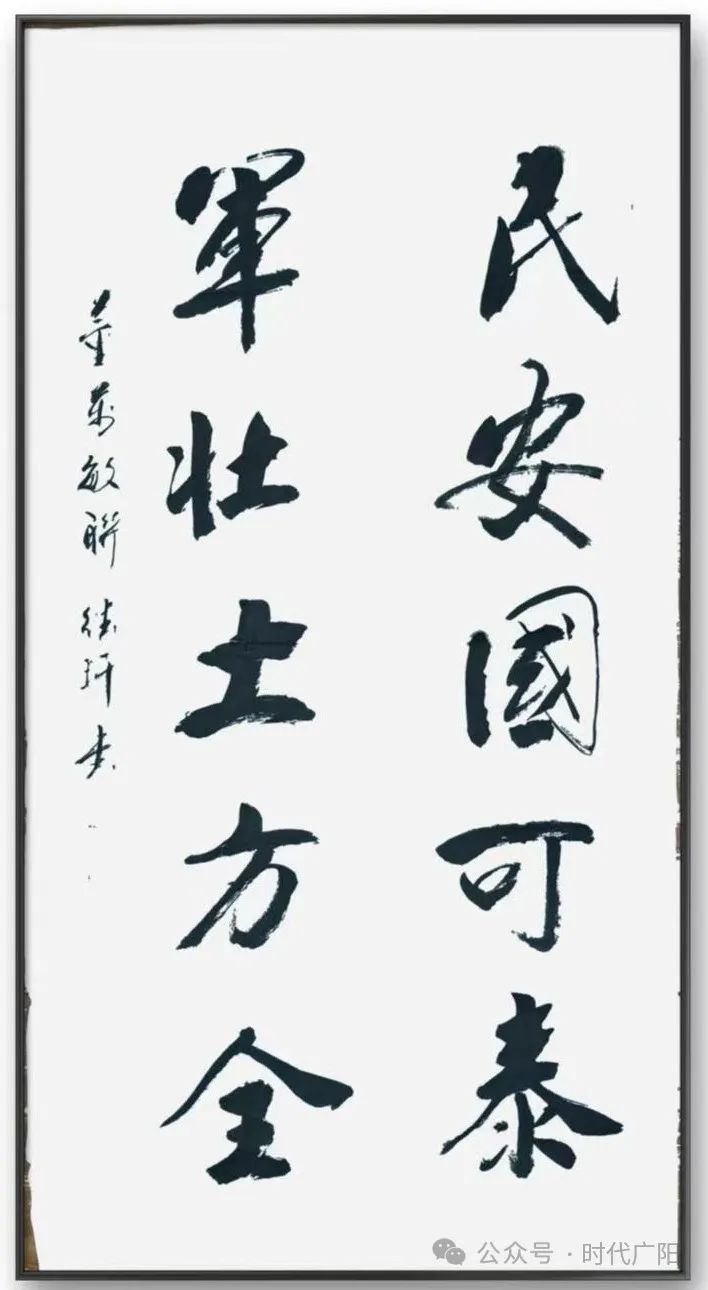 民安國可泰
軍壯土方全
董萬敏聯 書
公众号 · 时代广阳